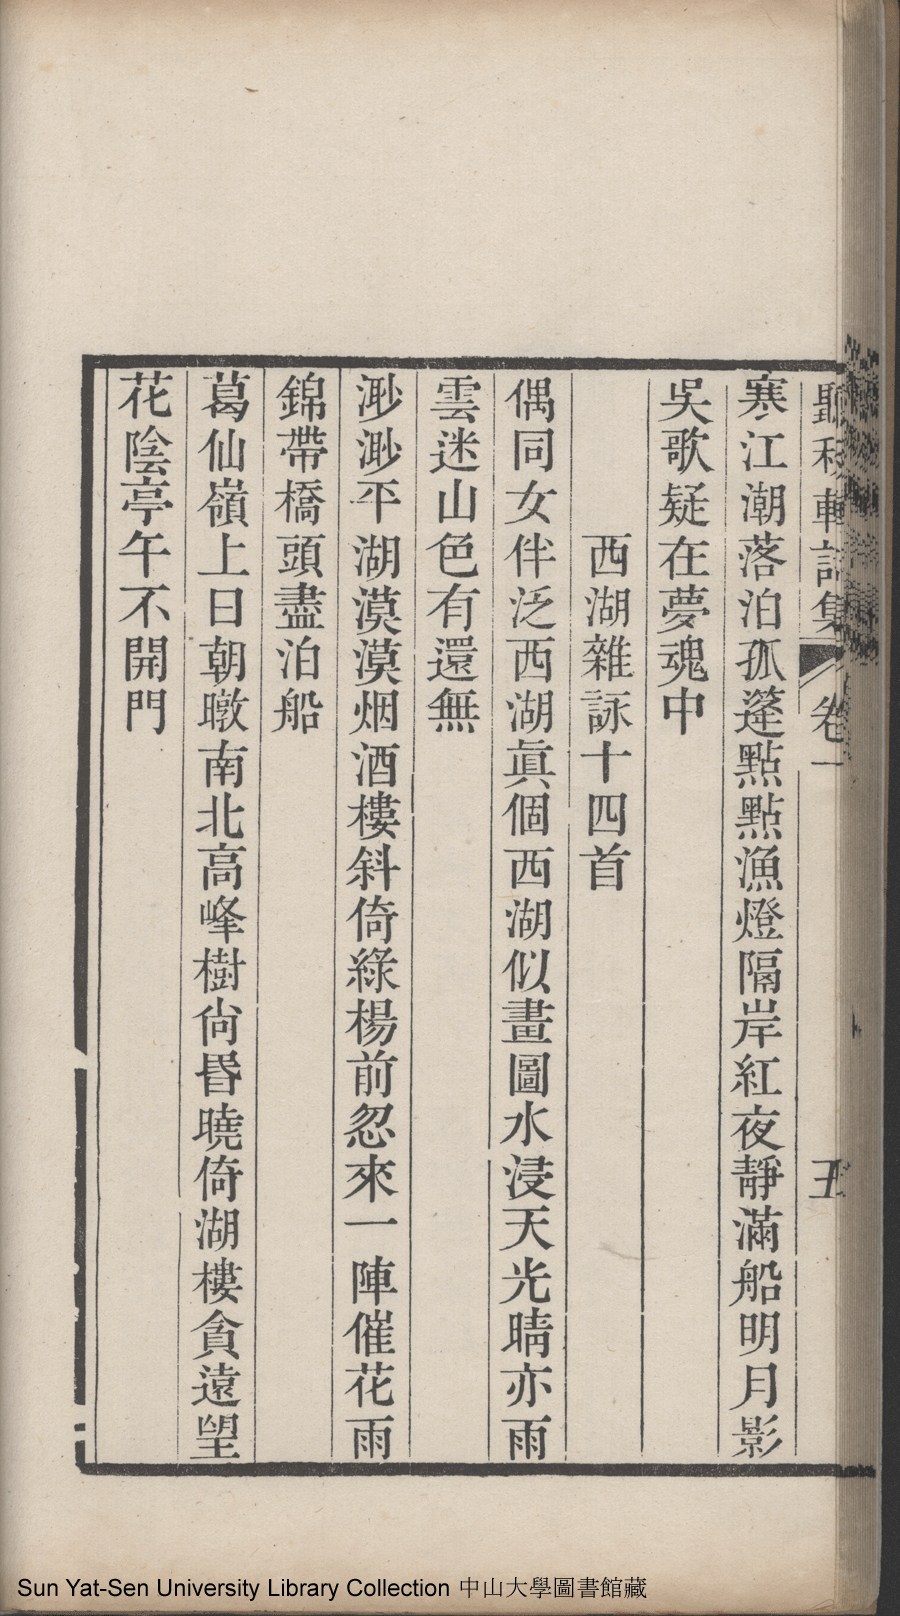 聽秋軒詩集 卷一 五
寒江潮落泊孤蓬點點漁燈隔岸紅夜靜滿船明月影
吳歌疑在夢魂中
西湖雜詠十四首
偶同女伴泛西湖眞個西湖似畫圖水浸天光晴亦雨
雲迷山色有還無
渺渺平湖漠漠烟酒樓斜倚綠楊前忽來一陣催花雨
錦帶橋頭盡泊船
葛仙嶺上日朝暾南北高峰樹尙昬曉倚湖樓貪遠朢
花陰亭午不開門
Sun Yat-Sen University Library Collection 中山大學圖書館藏